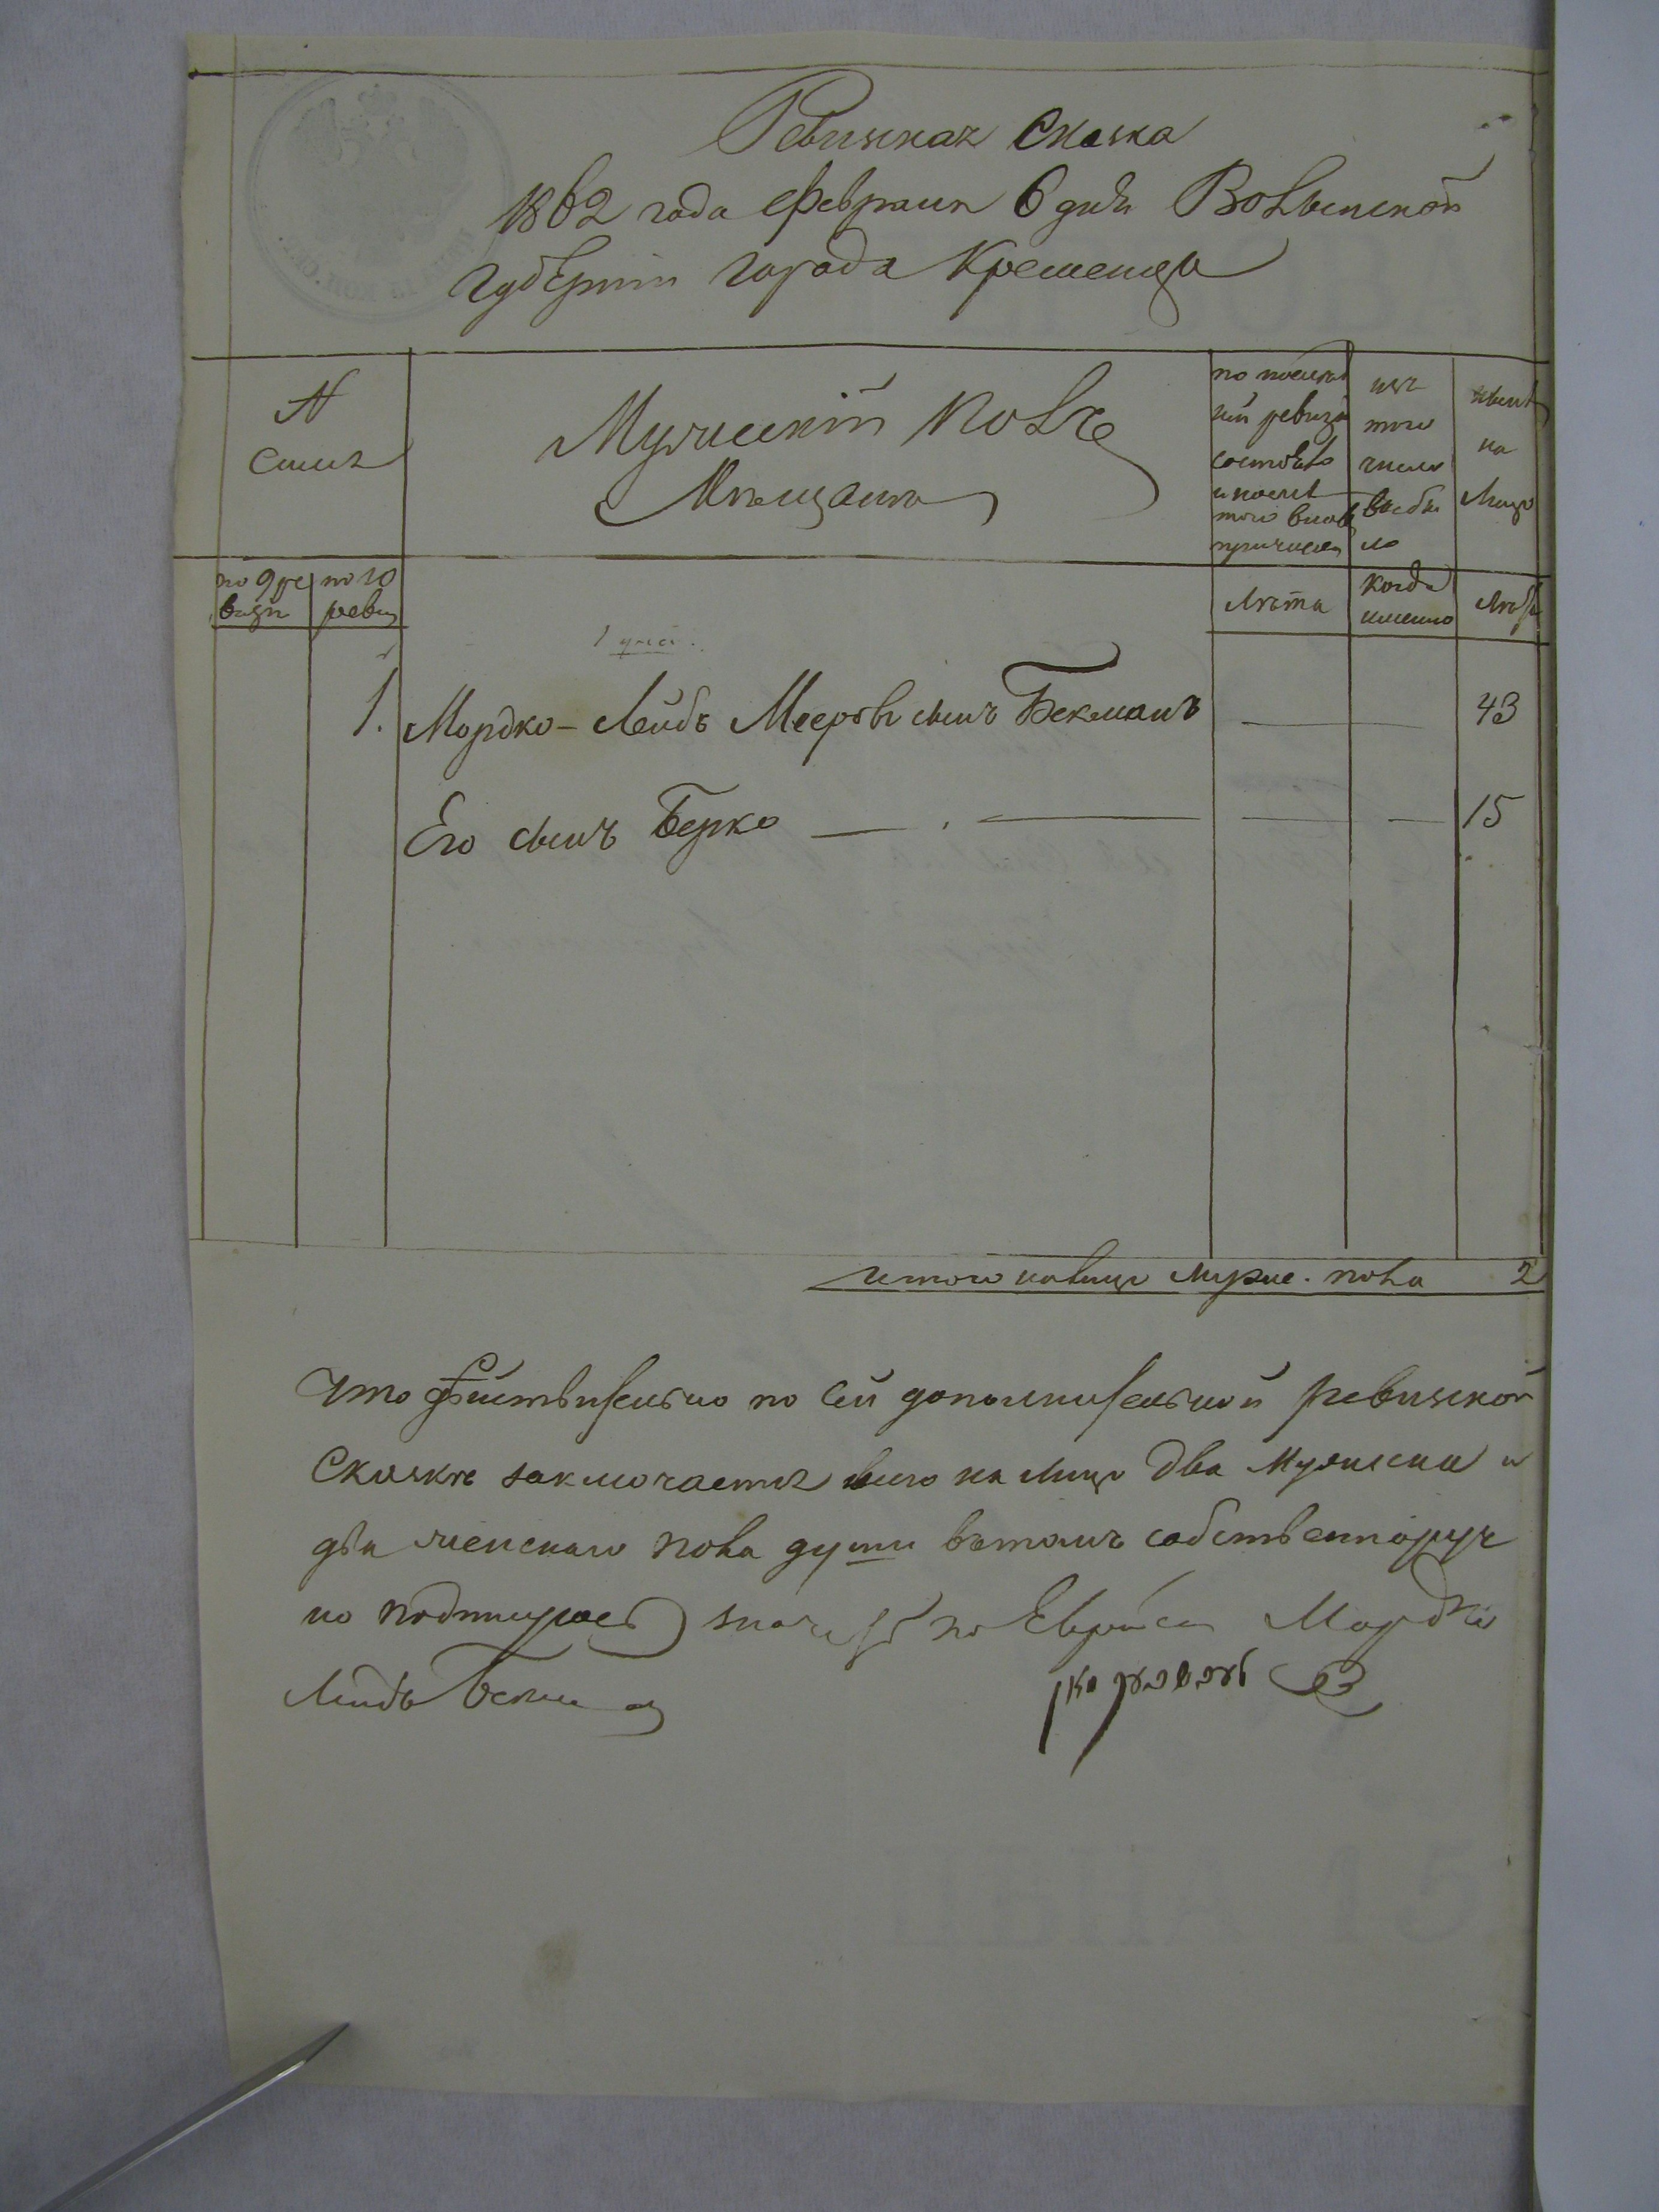 Ревизкая Сказка
1862 года февраля 6 дня Волынской
Губерніи города Кременца
№
Семьи
Мужескій полъ
Мѣщане
по послед
ней ревизіи
состояло
и после
того вновь
причислен
изъ
того
числа
выбы
ло
ныне
на
Лицо
по 9 ре
визіи
по 10
ревиз
Лѣта
когда
именно
Лѣта
1.
Мордко-Лейбъ Мееровъ сынъ Бекманъ
43
Его сынъ Берко
15
Итого налицо мужес. пола 2
Что действительно по сей дополнительной ревизкой
Сказкѣ заключается всего на лицо два Мужеска и
два женскаго пола души вътомъ собственноруч
но подписуюсь Мордко
Лейбъ Бекман